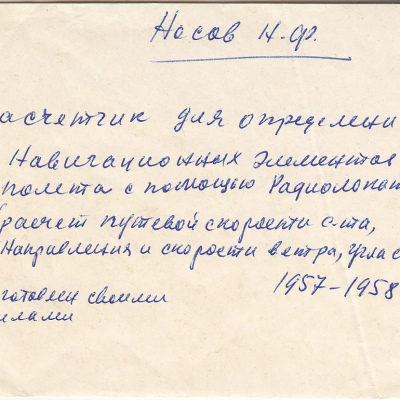 Носов Н.Ф.
асчетчик для определени
Навигационных элементов
полета с помощью Радиолокат
расчет путевой скорости с-та,
Направления и скорости ветра, угла с
1957-1958
готовлен своими
илами